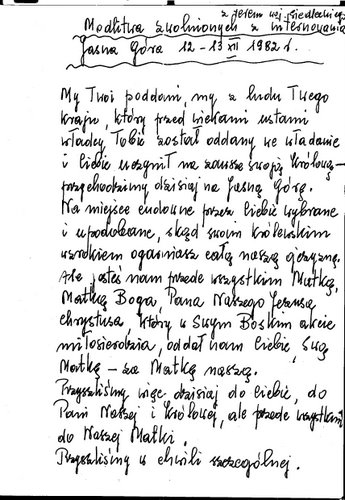 z terenu woj. siedleckiego
Modlitwa zwolnionych z internowania
Jasna Góra 12-13 XII 1982 r.
My Twoi poddani, my z ludu Twego
kraju, który przed wiekami ustami
władcy Tobie został oddany we władanie
i Ciebie uczynił na zawsze swoją Królową –
przychodzimy dzisiaj na Jasną Górę.
Na miejsce cudowne przez Ciebie wybrane
i upodobane, skąd swoim królewskim
wzrokiem ogarniasz całą naszą ojczyznę.
Ale jesteś nam przede wszystkim Matką,
Matką Boga, Pana Naszego Jezusa
Chrystusa, który w Swym Boskim akcie
miłosierdzia, oddał nam Ciebie, Swą
Matkę – za Matkę naszą.
Przyszliśmy więc dzisiaj do Ciebie, do
Pani Naszej i Królowej, ale przede wszystkim
do Naszej Matki.
Przyszliśmy w chwili szczególnej.